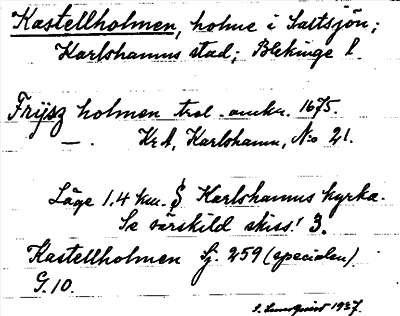 Kastellholmen, holme i Saltsjön;
Karlshamns stad; Blekinge l.
Frijsz holmen trol. omkr. 1675.
—. KrA, Karlshamn, No 21.
Läge 1.4 km. S Karlshamns kyrka.
Se särskild skiss! 3.
Kastellholmen Sj. 259 (specialen)
G.10.
1937.